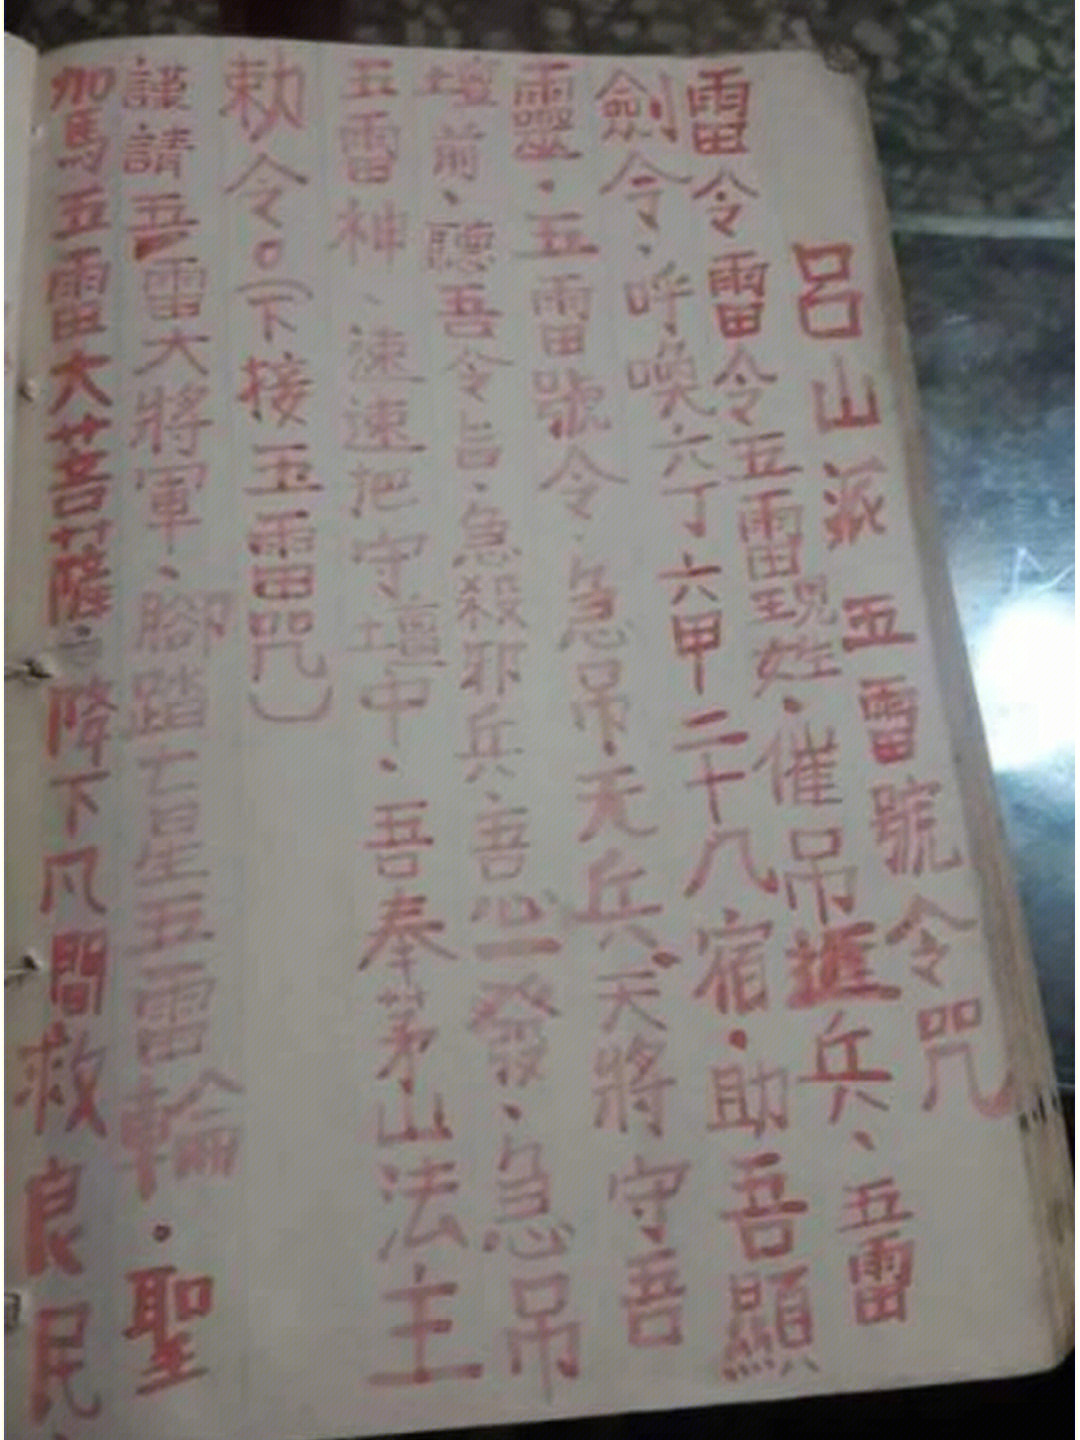 呂山派五雷號令咒
雷令雷令五雷現姓、催吊進兵、五雷
劍令、呼喚六丁六甲二十八宿、助吾顯
靈、五雷號令、急吊、天兵天將守吾
壇前、聽吾令旨、急殺邪兵、吾心一發、急吊
五雷神、速速把守壇中、吾奉茅山法主
敕令。(下接五雷咒)
謹請五雷大將軍、腳踏七星五雷輪、聖
加馬五雷大菩薩、降下凡間救良民、